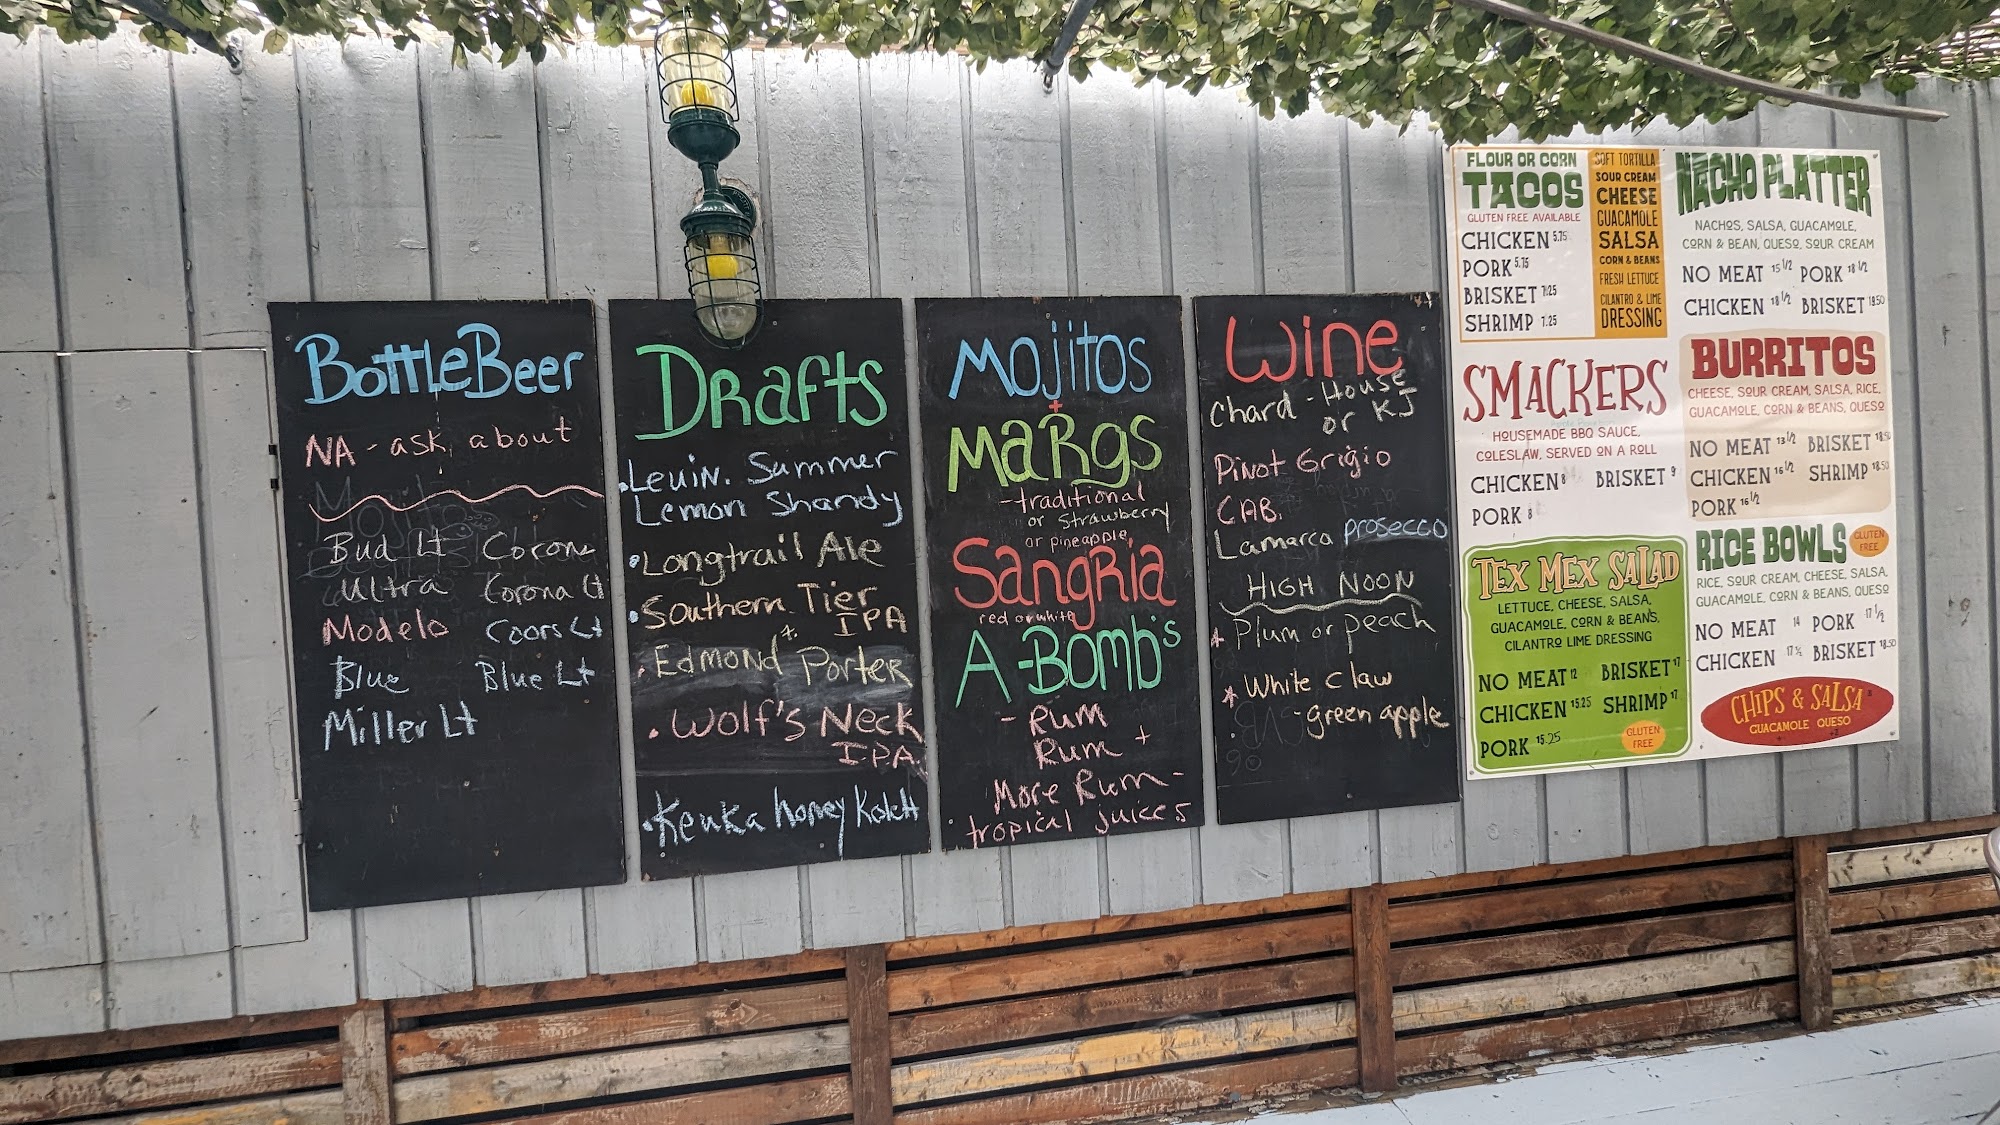 BottleBeer
NA - ask about
Bud Lt Corona
Ultra Corona Lt
Modelo Coors Lt
Blue Blue Lt
Miller Lt
Drafts
. Leuin. Summer
Lemon Shandy
• Longtrail Ale
• Southern Tier
IPA
. Edmond Porter
. Wolf's Neck
IPA
. Keuka honey Kolsch
Mojitos
+
Margs
- traditional
or strawberry
or pineapple
Sangria
red or white
A-Bomb's
- Rum
Rum +
More Rum -
tropical juices
Wine
Chard - House
or KJ
Pinot Grigio
CAB.
Lamarca prosecco
HIGH NOON
* Plum or peach
* White Claw
- green apple
FLOUR OR CORN
TACOS
GLUTEN FREE AVAILABLE
CHICKEN 5.75
PORK 5.75
BRISKET 7.25
SHRIMP 7.25
SOFT TORTILLA
SOUR CREAM
CHEESE
GUACAMOLE
SALSA
CORN & BEANS
FRESH LETTUCE
CILANTRO & LIME
DRESSING
SMACKERS
HOUSEMADE BBQ SAUCE,
COLESLAW, SERVED ON A ROLL
CHICKEN 8 BRISKET 9
PORK 8
TEX MEX SALAD
LETTUCE, CHEESE, SALSA,
GUACAMOLE, CORN & BEANS,
CILANTRO LIME DRESSING
NO MEAT 12 BRISKET 17
CHICKEN 15.25 SHRIMP 17
PORK 15.25
GLUTEN
FREE
NACHO PLATTER
NACHOS, SALSA, GUACAMOLE,
CORN & BEAN, QUESO, SOUR CREAM
NO MEAT 15 1/2 PORK 18 1/2
CHICKEN 18 1/2 BRISKET 18.50
BURRITOS
CHEESE, SOUR CREAM, SALSA, RICE,
GUACAMOLE, CORN & BEANS, QUESO
NO MEAT 13 1/2 BRISKET 18.50
CHICKEN 16 1/2 SHRIMP 18.50
PORK 16 1/2
RICE BOWLS
GLUTEN
FREE
RICE, SOUR CREAM, CHEESE, SALSA,
GUACAMOLE, CORN & BEANS, QUESO
NO MEAT 14 PORK 17 1/2
CHICKEN 17 1/2 BRISKET 18.50
CHIPS & SALSA
GUACAMOLE QUESO